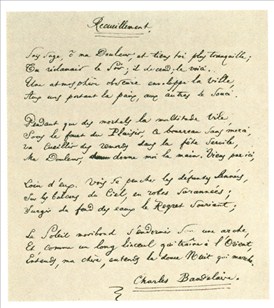 Recueillement.
Sois sage, ô ma Douleur, et tiens toi plus tranquille;
Tu réclamais le Soir; il descend; le voici:
Une atmosphère obscure enveloppe la ville,
Aux uns portant la paix, aux autres le souci.
Pendant que des mortels la multitude vile,
Sous le fouet du Plaisir, ce bourreau sans merci,
Va cueillir des remords dans la fête servile,
Ma Douleur, donne moi la main; Viens par ici,
Loin d'eux. Vois se pencher les défuntes Années,
Sur les balcons du Ciel, en robes surannées;
Surgir du fond des eaux le Regret souriant;
Le Soleil moribond s'endormir sous une arche,
Et comme un long linceul qui traîne à l'Orient,
Entends, ma chère, entends la douce Nuit qui marche.
Charles Baudelaire.